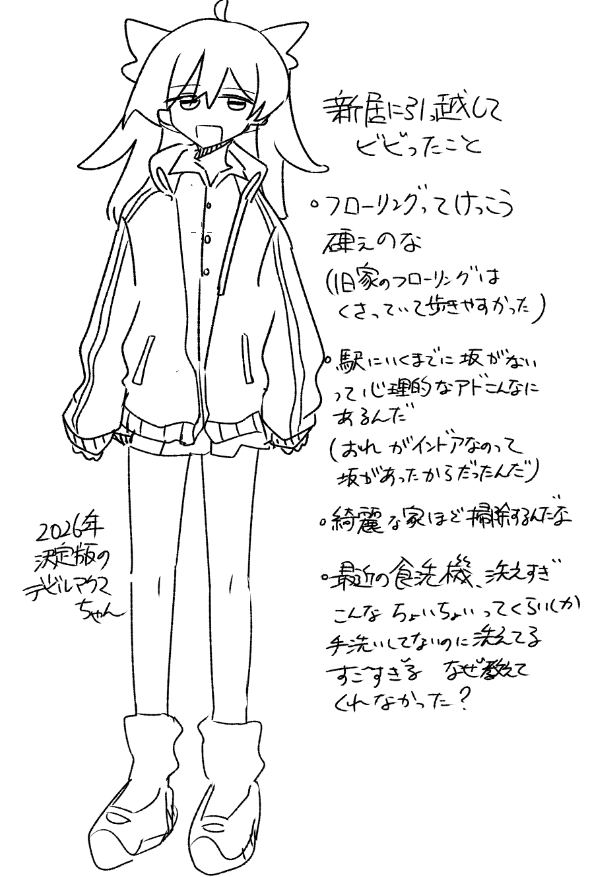 新居に引っ越して
ビビったこと
・フローリングってけっこう
硬えのな
(旧家のフローリングは
くさっていて歩きやすかった)
・駅にいくまでに坂がない
って心理的なアドこんなに
あるんだ
(おれがインドアなのって
坂があったからだったんだ)
・綺麗な家ほど掃除するんだな
・最近の食洗機、洗えすぎ
こんなちょいちょいってくらいしか
手洗いしてないのに洗えてる
すごすぎる なぜ教えて
くれなかった?
2026年
決定版の
デビルマウス
ちゃん